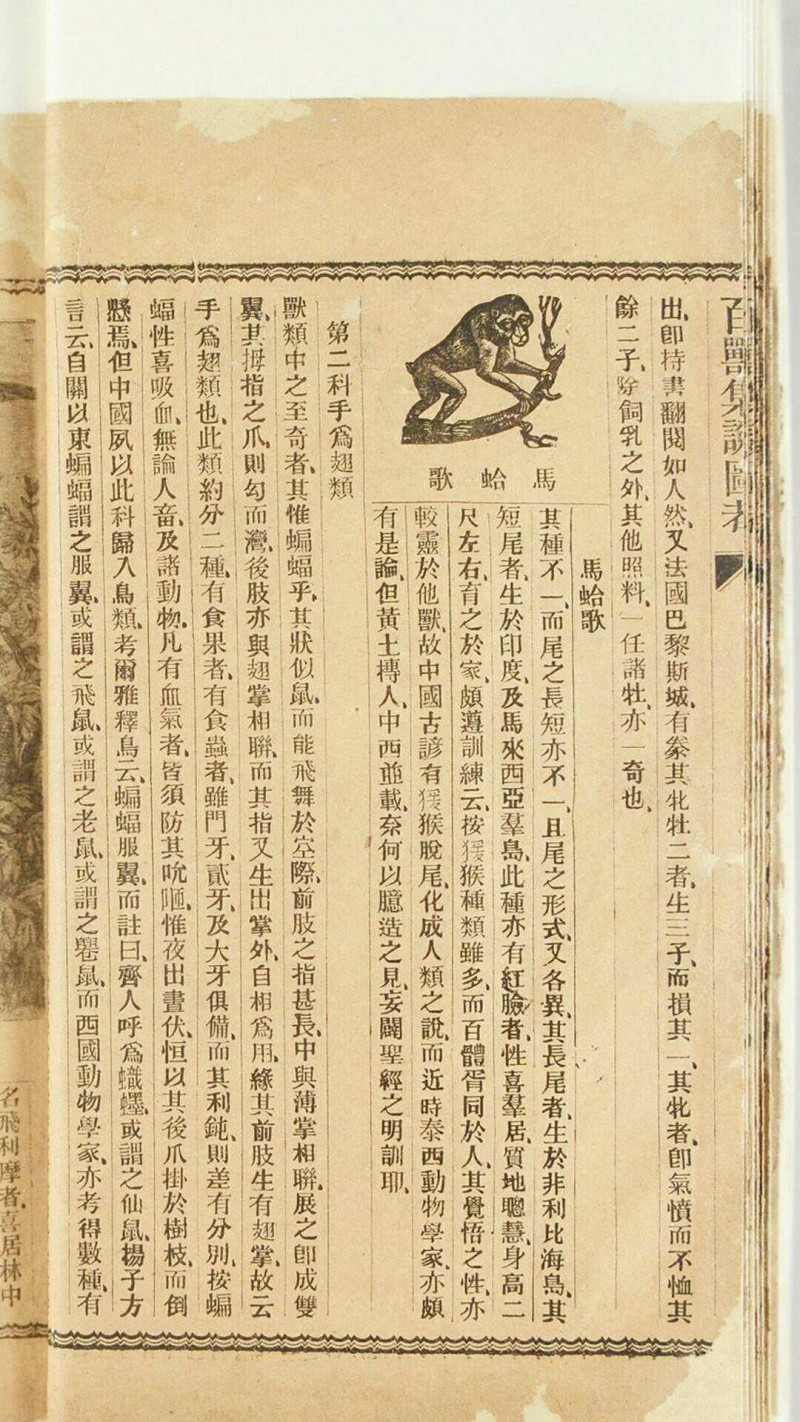 百獸集說圖考
出、卽持書翻閱如人然、又法國巴黎斯城、有豢其牝牡二者、生三子、而損其一、其牝者、卽氣憤而不恤其
餘二子、除飼乳之外、其他照料、一任諸牡、亦一奇也、
馬蛤歌
馬蛤歌
其種不一、而尾之長短亦不一、且尾之形式、又各異、其長尾者、生於非利比海島、其
短尾者、生於印度、及馬來西亞羣島、此種亦有紅臉者、性喜羣居、質地聰慧、身高二
尺左右、育之於家、頗遵訓練云、按猨猴種類雖多、而百體胥同於人、其覺悟之性、亦
較靈於他獸、故中國古諺有猨猴脫尾、化成人類之說、而近時泰西動物學家、亦頗
有是論、但黃土摶人、中西並載、奈何以臆造之見、妄闢聖經之明訓耶、
第二科手爲翅類
獸類中之至奇者、其惟蝙蝠乎、其狀似鼠、而能飛舞於空際、前肢之指甚長、中與薄掌相聯、展之卽成雙
翼、其拇指之爪、則勾而灣、後肢亦與翅掌相聯、而其指又生出掌外、自相爲用、緣其前肢生有翅掌、故云
手爲翅類也、此類約分二種、有食果者、有食蟲者、雖門牙、貳牙、及大牙俱備、而其利鈍、則差有分別、按蝙
蝠性喜吸血、無論人畜、及諸動物、凡有血氣者、皆須防其吮咂、惟夜出晝伏、恒以其後爪掛於樹枝、而倒
懸焉、但中國夙以此科歸入鳥類、考爾雅釋鳥云、蝙蝠服翼、而註曰、齊人呼爲蟙䘃、或謂之仙鼠、揚子方
言云、自關以東蝙蝠謂之服翼、或謂之飛鼠、或謂之老鼠、或謂之䙴鼠、而西國動物學家、亦考得數種、有
名飛利摩者、喜居林中